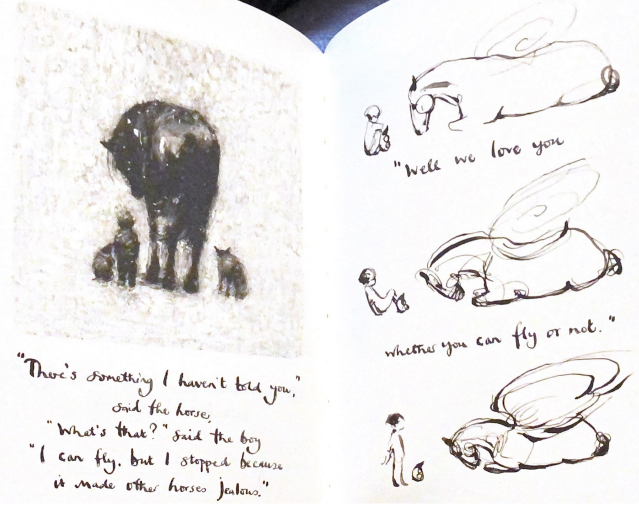 "There's something I haven't told you,"
said the horse,
"What's that?" said the boy
"I can fly, but I stopped because
it made other horses jealous."
"Well we love you
whether you can fly or not."